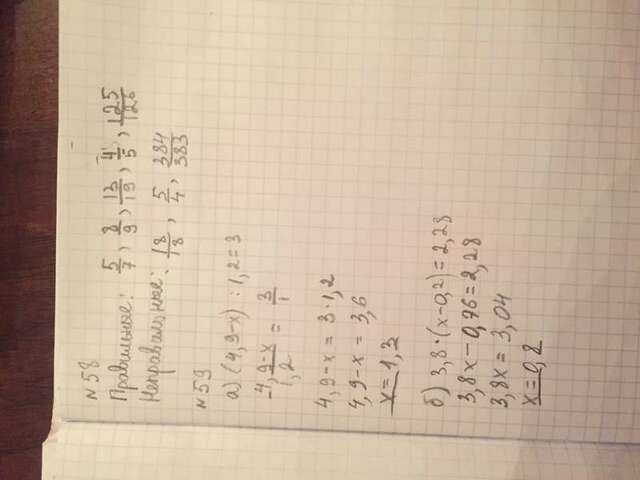 №58
Правильные: 5/7, 8/9, 13/19, 4/5, 125/126
Неправильные: 18/18, 5/4, 384/383
№59
а) (4,9-x) : 1,2 = 3
4,9-x/1,2 = 3/1
4,9-x = 3·1,2
4,9-x = 3,6
x = 1,3
б) 3,8·(x-0,2) = 2,28
3,8x - 0,76 = 2,28
3,8x = 3,04
x = 0,8